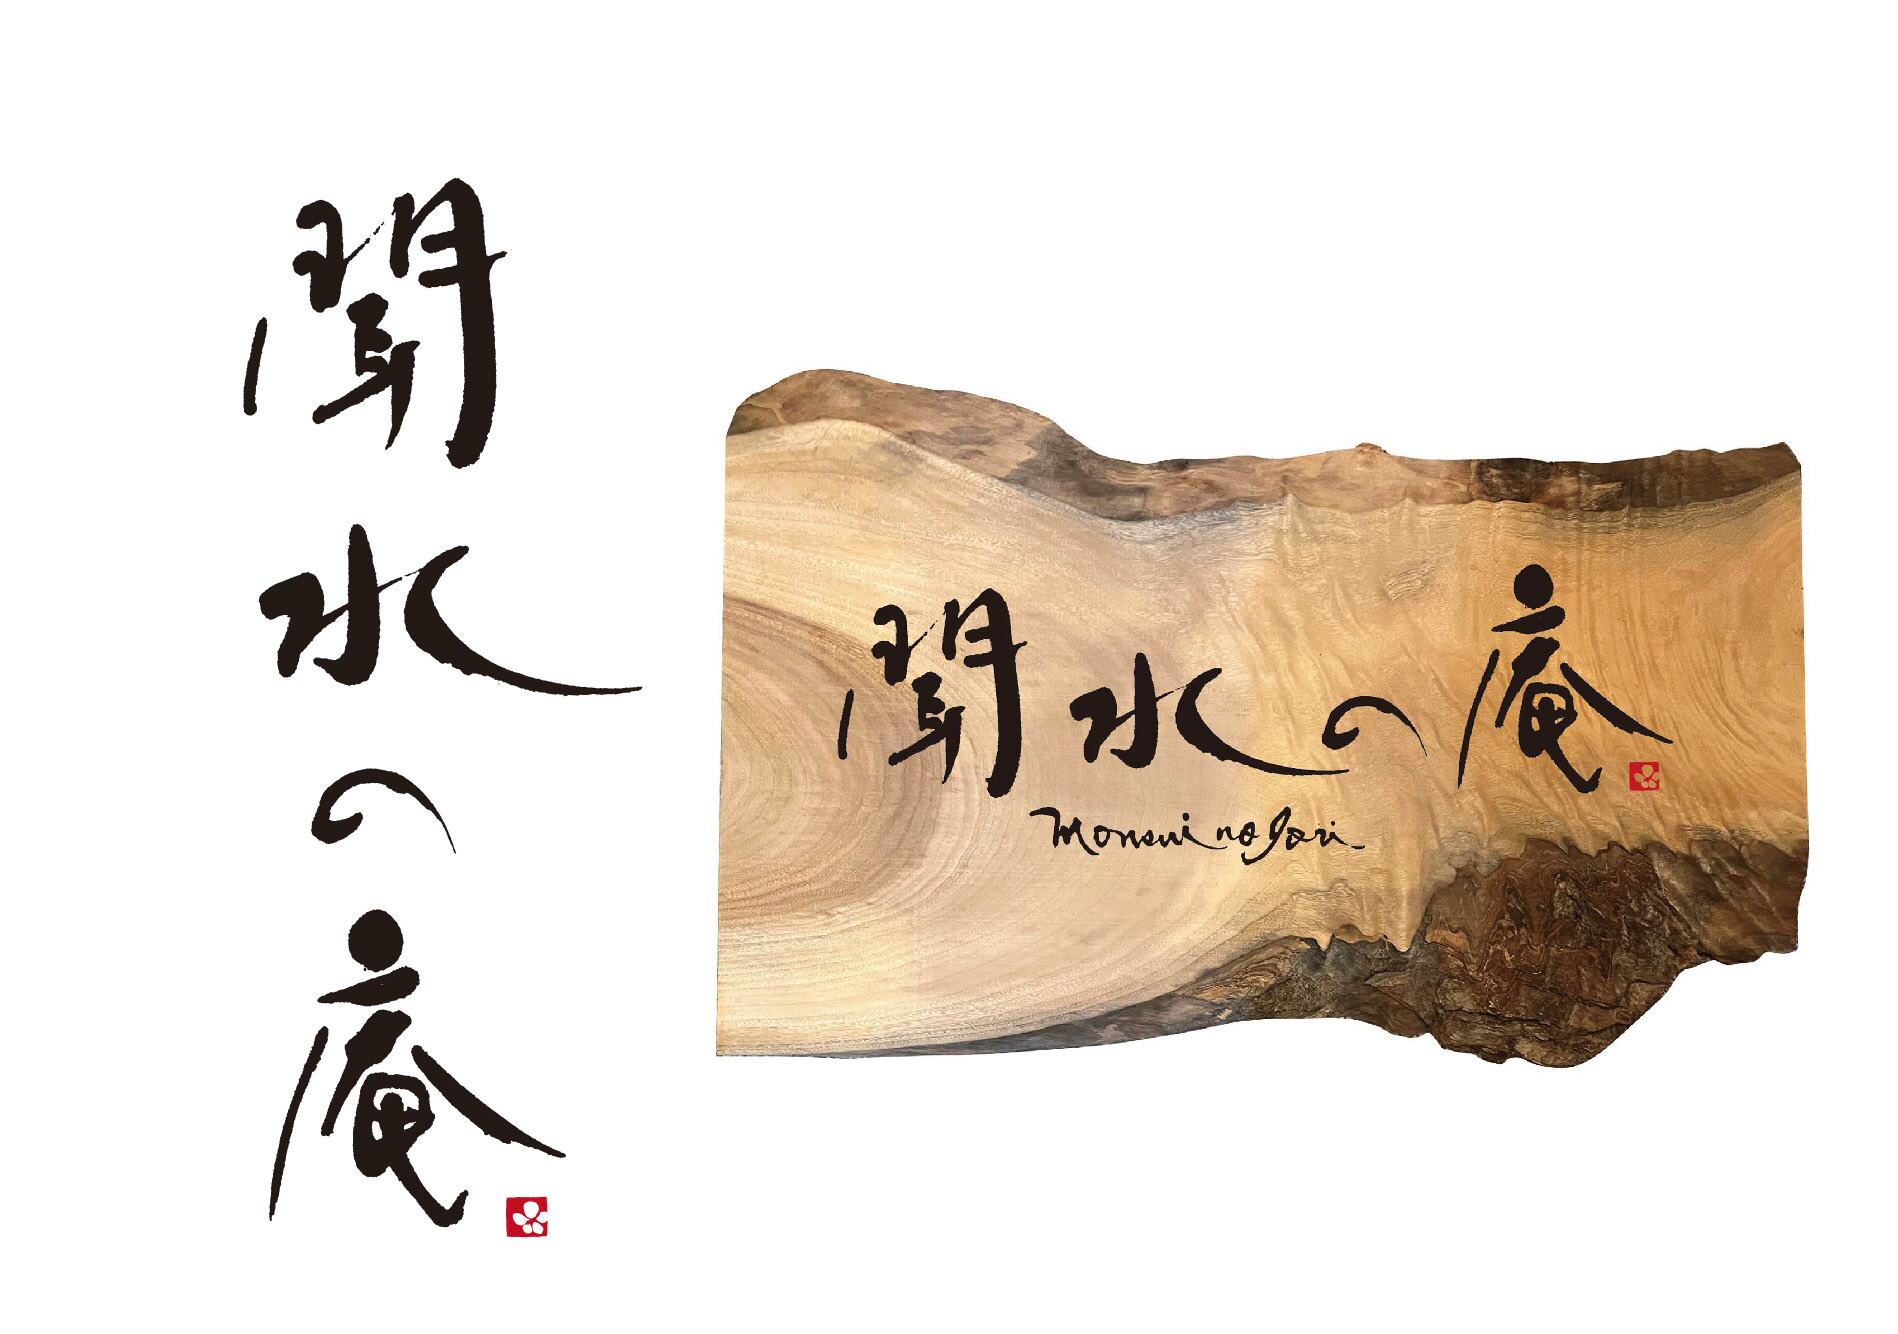 聞水の庵
聞水の庵
Monsui no Iori